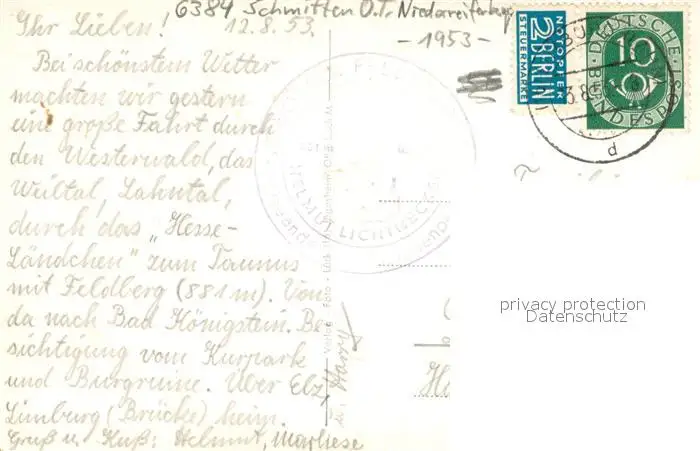 6384 Schmitten O.T. Niederreifenberg
- 1953 -
Ihr Lieben!
12.8.53.
Bei schönstem Wetter
machten wir gestern
eine große Fahrt durch
den Westerwald, das
Weiltal, Lahntal,
durch das "Hesse-
Ländchen" zum Taunus
mit Feldberg (881 m). Von
da nach Bad Königstein. Be-
sichtigung vom Kurpark
und Burgruine. Über Elz,
Limburg (Brücke) heim.
Gruß u. Kuß: Helmut, Marliese
Harry
NOTOPFER
2 BERLIN
STEUERMARKE
DEUTSCHE
BUNDESPOST
10
d
FELD
HELMUT
Verlag
Foto
privacy protection
Datenschutz